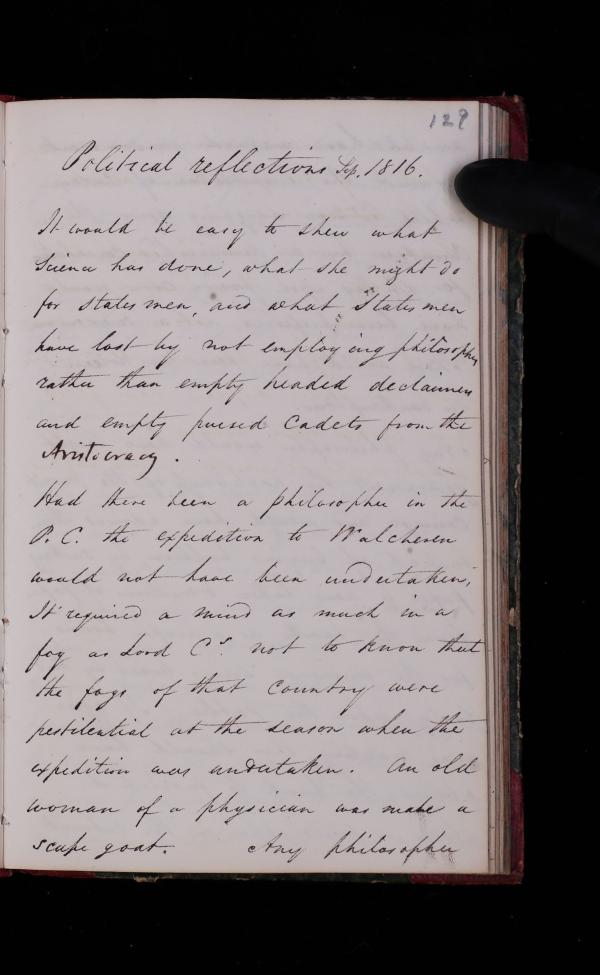 129
Political reflections Sep. 1816.
It would be easy to shew what
Science has done, what she might do
for states men, and what States men
have lost by not employing philosophers
rather than empty headed declaimers
and empty pursed Cadets from the
Aristocracy.
Had there been a philosopher in the
P. C. the expedition to Walcheren
would not have been undertaken,
It required a mind as much in a
fog as Lord Cs. not to know that
the fogs of that country were
pestilential at the season when the
expedition was undertaken. An old
woman of a physician was made a
scape goat. Any philosopher